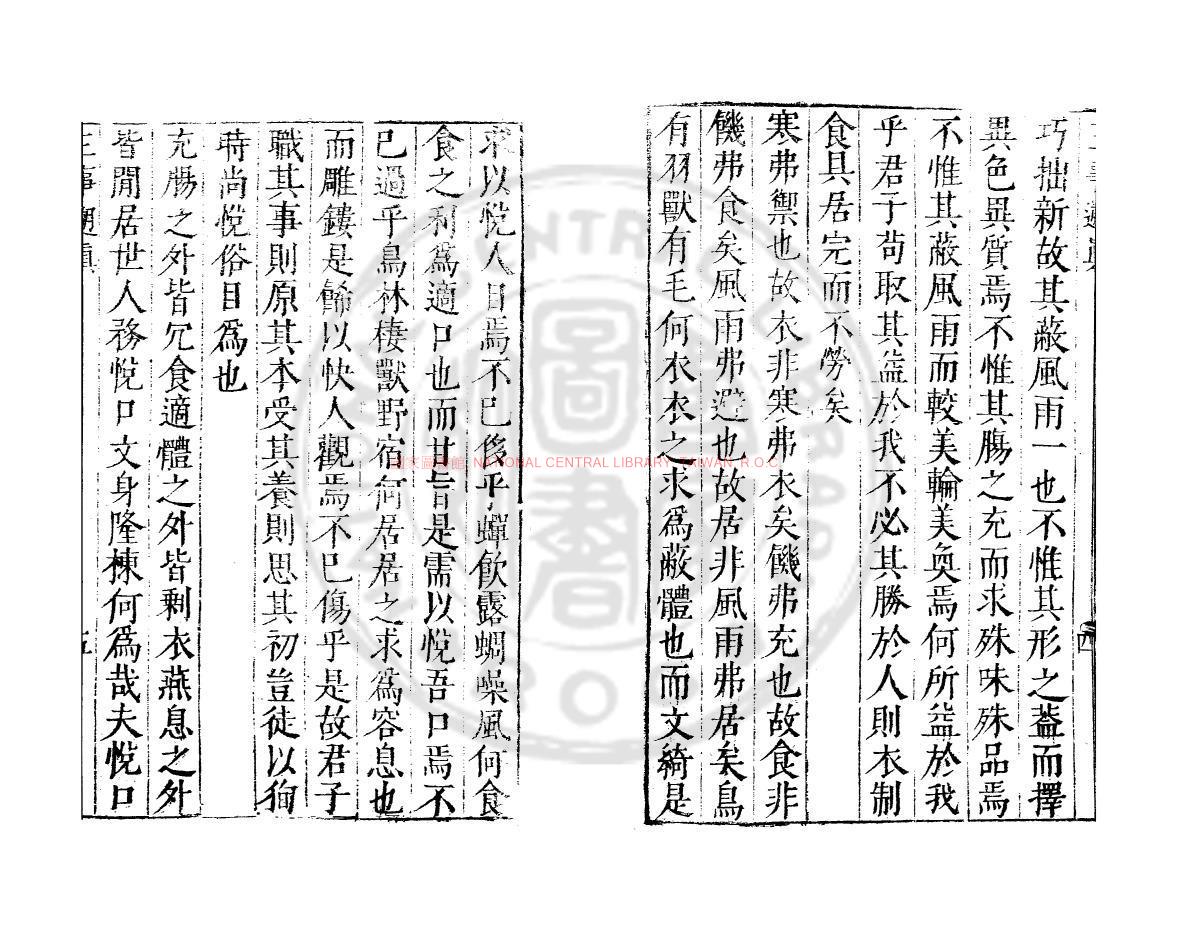 巧拙新故其蔽風雨一也不惟其形之葢而擇
異色異質焉不惟其膓之充而求殊味殊品焉
不惟其蔽風雨而較美輪美奐焉何所益於我
乎君子苟取其益於我不必其勝於人則衣制
食具居完而不勞矣
寒弗禦也故衣非寒弗衣矣饑弗充也故食非
饑弗食矣風雨弗避也故居非風雨弗居矣鳥
有羽獸有毛何衣衣之求為蔽體也而文綺是
求以悅人目焉不已侈乎蟬飲露蜩噪風何食
食之利為適口也而甘旨是需以悅吾口焉不
已過乎鳥林棲獸野宿何居居之求為容息也
而雕鏤是餙以快人觀焉不已傷乎是故君子
職其事則原其本受其養則思其初豈徒以徇
時尚悅俗目為也
充膓之外皆冗食適體之外皆剩衣燕息之外
皆閒居世人務悅口文身隆棟何為哉夫悅口
四
五
國家圖書館 NATIONAL CENTRAL LIBRARY, TAIWAN, R.O.C